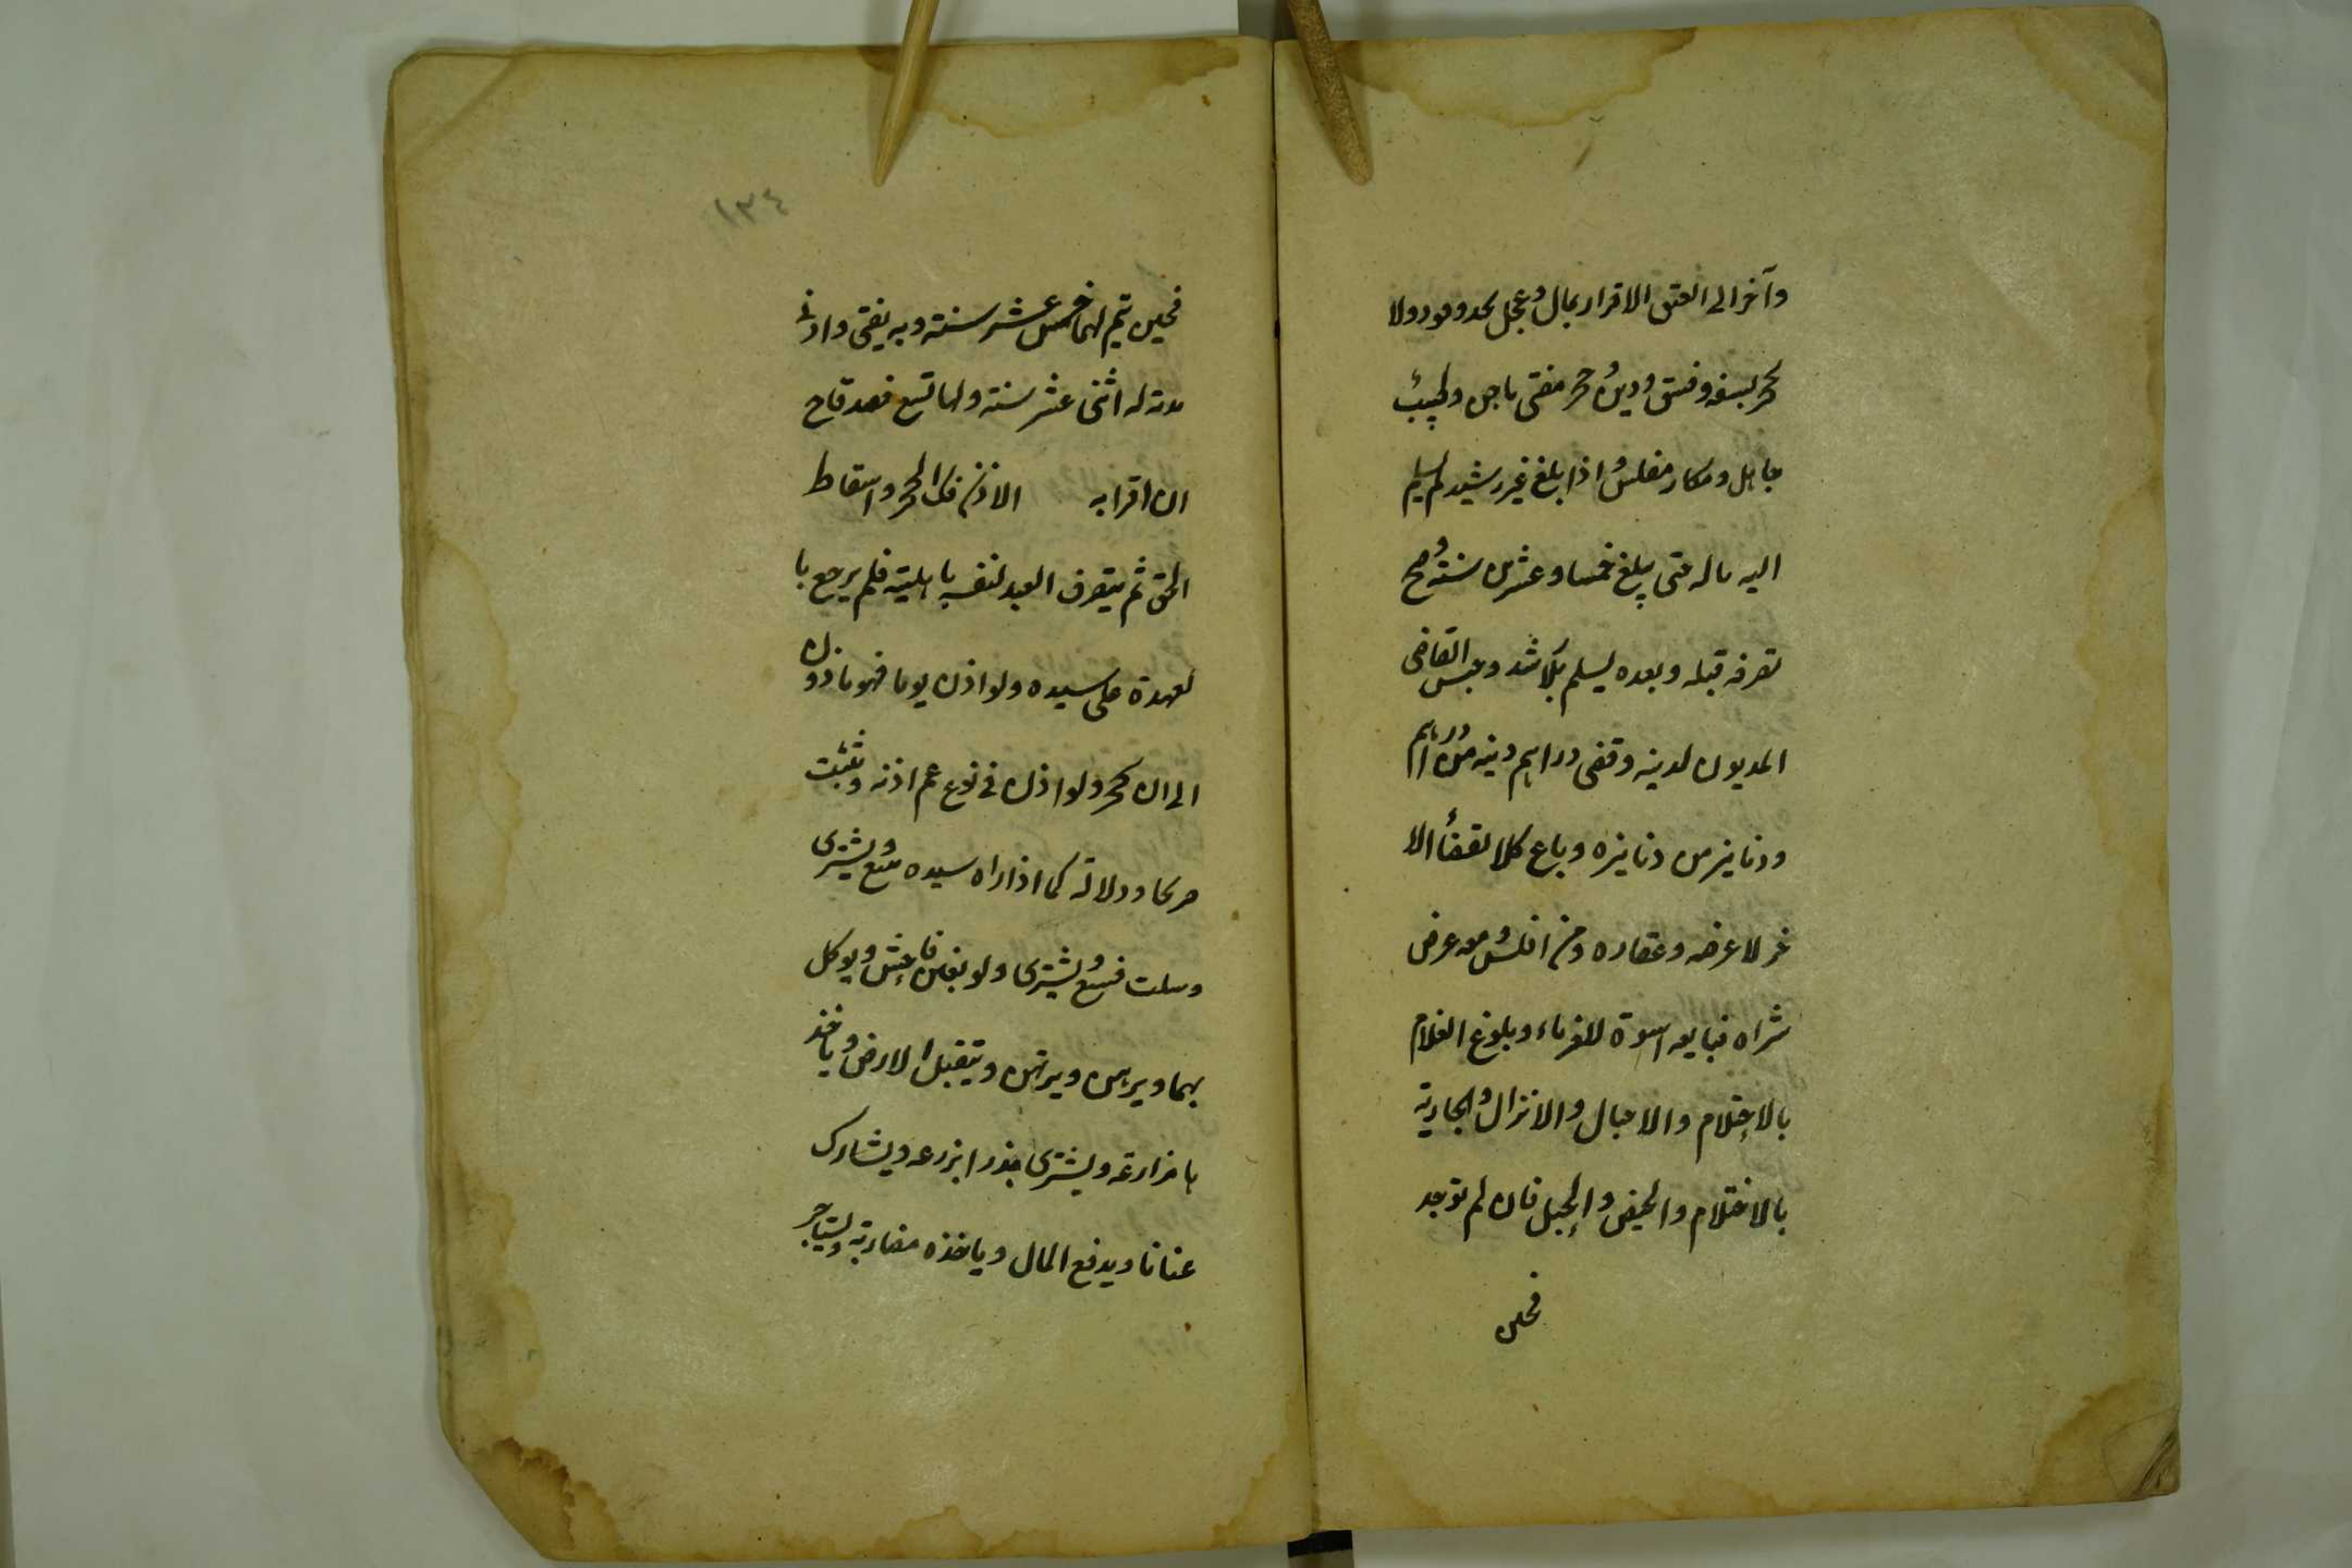 وآخر الى العتق الاقرار بمال وعجل بحد وقود ولا
حجر بسفه وفسق ودين وحجر مفتى ماجن وطبيب
جاهل ومكار مفلس واذا بلغ غير رشيد لم يسلم
اليه ماله حتى يبلغ خمسا وعشرين سنة وصح
تصرفه قبله وبعده يسلم بلا رشد وحبس القاضى
المديون لدينه وقضى دراهم دينه من دراهم
ودنانيز من دنانيزه وباع كلا لقضاء الا
خر لا عرضه وعقاره ومن افلس ومعه عرض
شراه فبايعه اسوة للغرماء وبلوغ الغلام
بالاحتلام والاحبال والانزال والجارية
بالاحتلام والحيض والحبل فان لم توجد
فحين
١٣٤
فحين تيم لهما خمس عشر سنة وبه يفتى وادنى
مدته له اثنى عشر سنة ولها تسع فصدقاح
ان اقرا به الاذن فك الحجر واسقاط
الحق ثم يتصرف العبد لنفسه باهليته فلم يرجع با
لعهدة على سيده ولو اذن يوما فهو ماذون
الى ان حجر ولو اذن فى نوع عم اذنه وتثبت
صريحا ودلالة كما اذا راه سيده يبيع ويشترى
وسكت فيبيع ويشترى ولو بغبن فاحش ويوكل
بهما ويرهن ويرتهن ويتقبل الارض وياخذ
ها مزارعة ويشترى بذرا يزرعه ويشارك
عنانا ويدفع المال وياخذه مضاربة ويستاجر